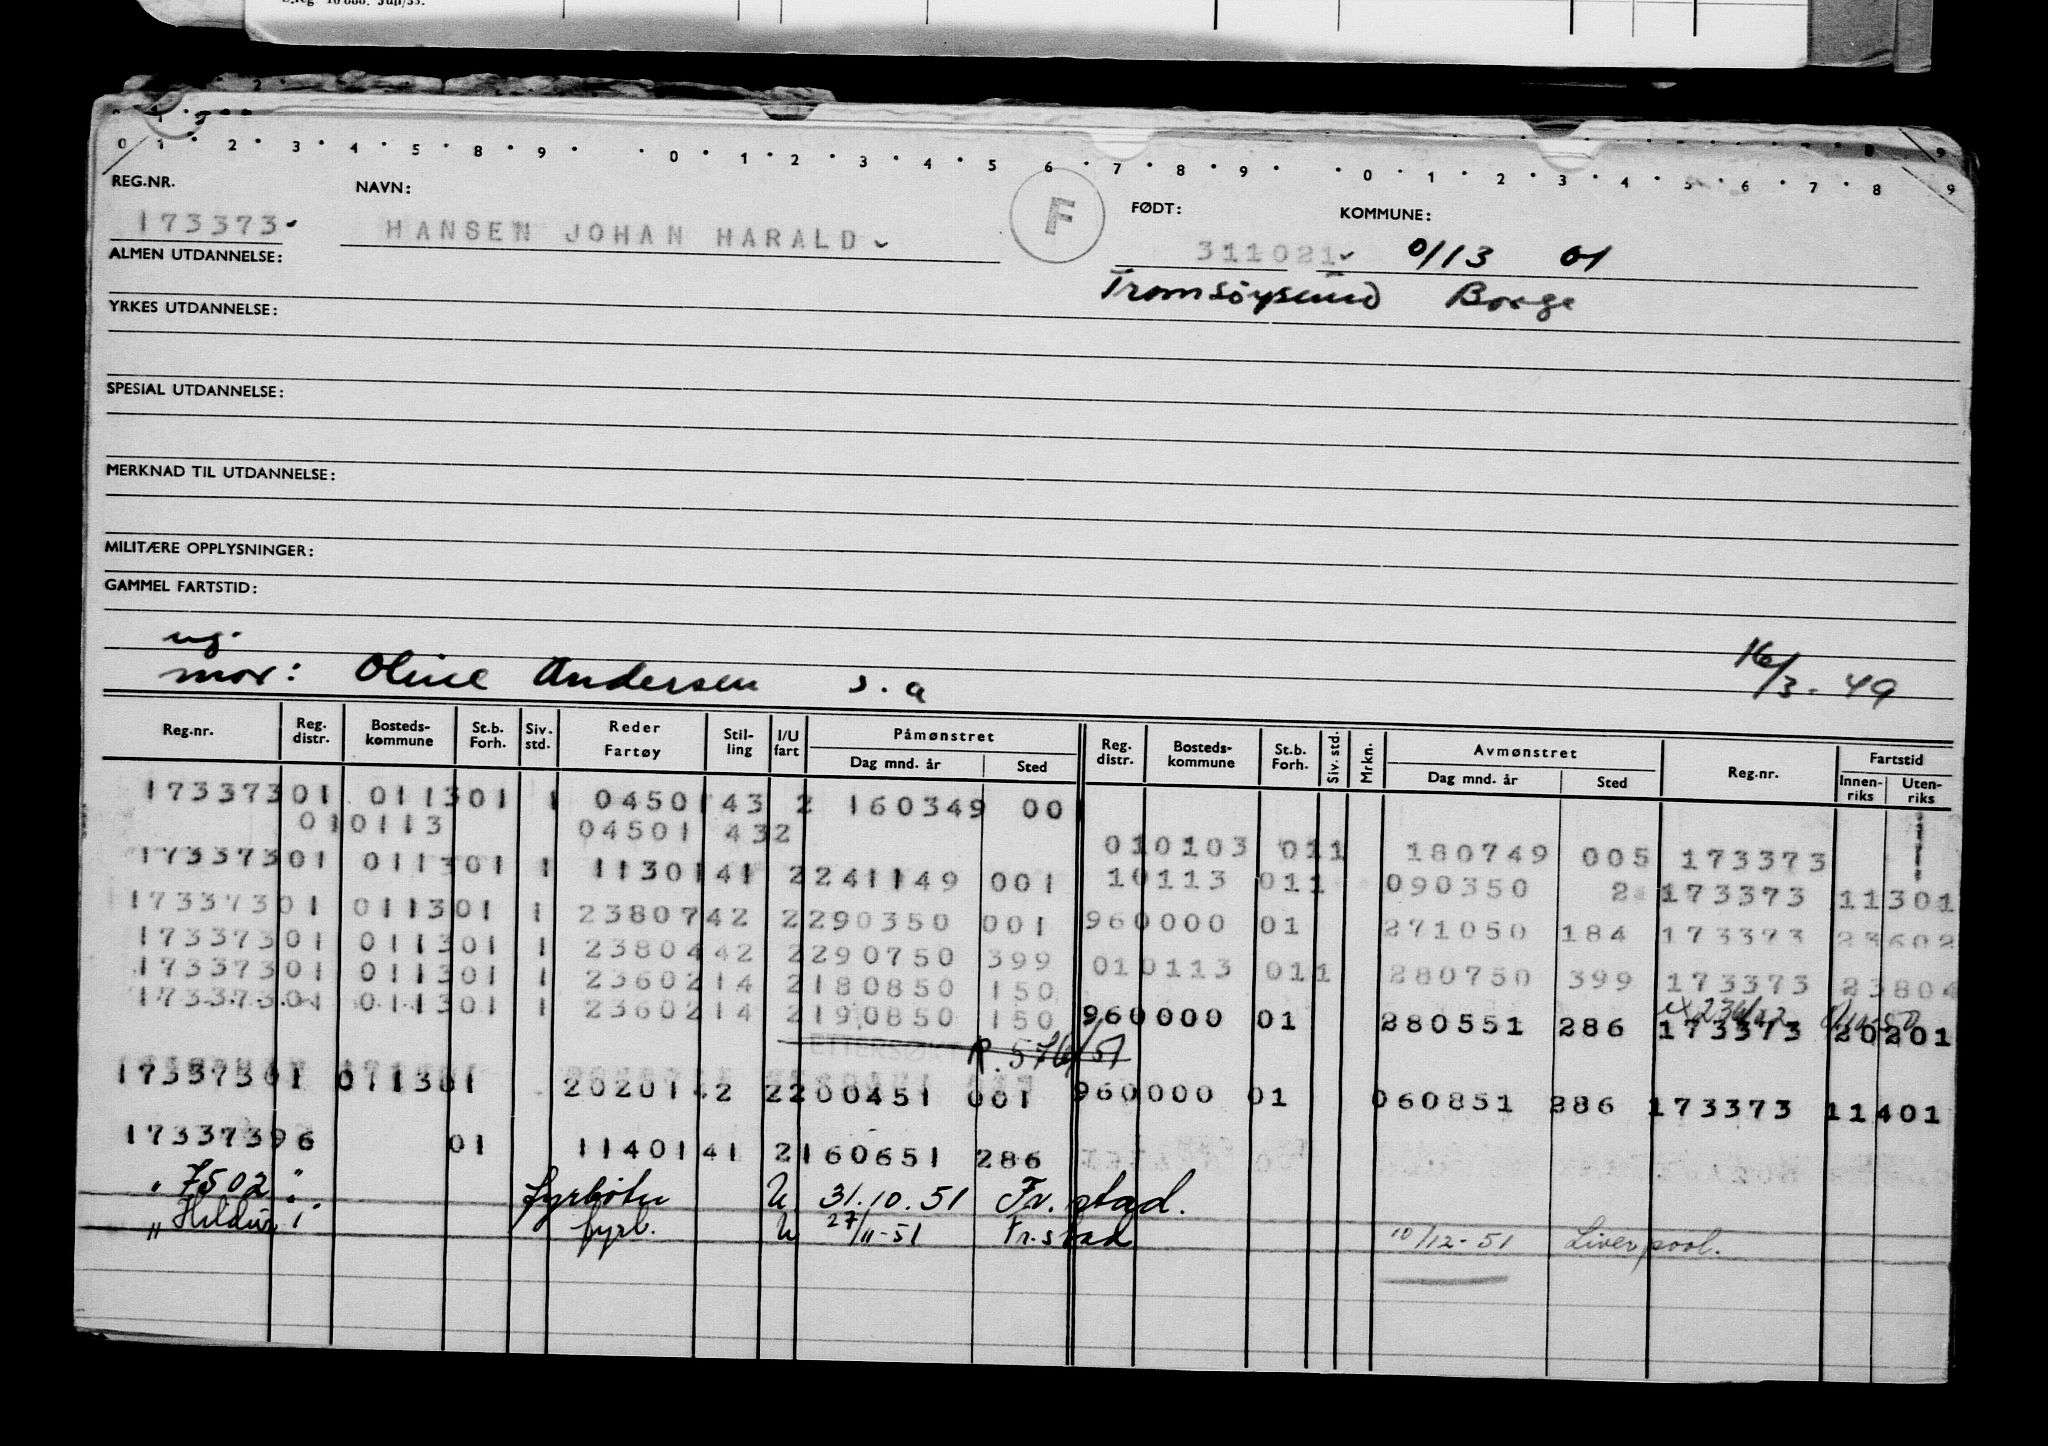 REG.NR. NAVN: F FØDT: KOMMUNE:
173373 HANSEN JOHAN HARALD 311021 0113 01
ALMEN UTDANNELSE: Tromsøysund Borge
YRKES UTDANNELSE:
SPESIAL UTDANNELSE:
MERKNAD TIL UTDANNELSE:
MILITÆRE OPPLYSNINGER:
GAMMEL FARTSTID:
ug.
mor: Oline Andersen s.a 16/3-49
Reg.nr. Reg. distr. Bosteds-kommune St.b. Forh. Siv. std. Reder Fartøy Stil-ling I/U fart Påmønstret Dag mnd. år Sted Reg. distr. Bosteds-kommune St.b. Forh. Siv. std. Mrkn. Avmønstret Dag mnd. år Sted Reg.nr. Fartstid Innen-riks Uten-riks
173373 01 0113 01 1 04501 43 2 160349 00
010113 04501 432 010103 011 180749 005 173373
173373 01 0113 01 1 11301 41 2 241149 001 10113 011 090350 2 173373 11301
173373 01 0113 01 1 23807 42 2 290350 001 960000 01 271050 184 173373 23602
173373 01 0113 01 1 23804 42 2 290750 399 010113 011 280750 399 173373 23804
173373 01 0113 01 1 23602 14 2 180850 150
173373 01 0113 01 1 23602 14 2 190850 150 960000 01 280551 286 173373 20201
ETTERSØK R. 576/51
173373 01 0113 01 20201 42 2 200451 001 960000 01 060851 286 173373 11401
173373 96 01 11401 41 2 160651 286
" 7502 " fyrbøter U 31.10.51 Fr.stad.
" Hildur I fyrb. U 27/11-51 Fr.stad 10/12-51 Liverpool.